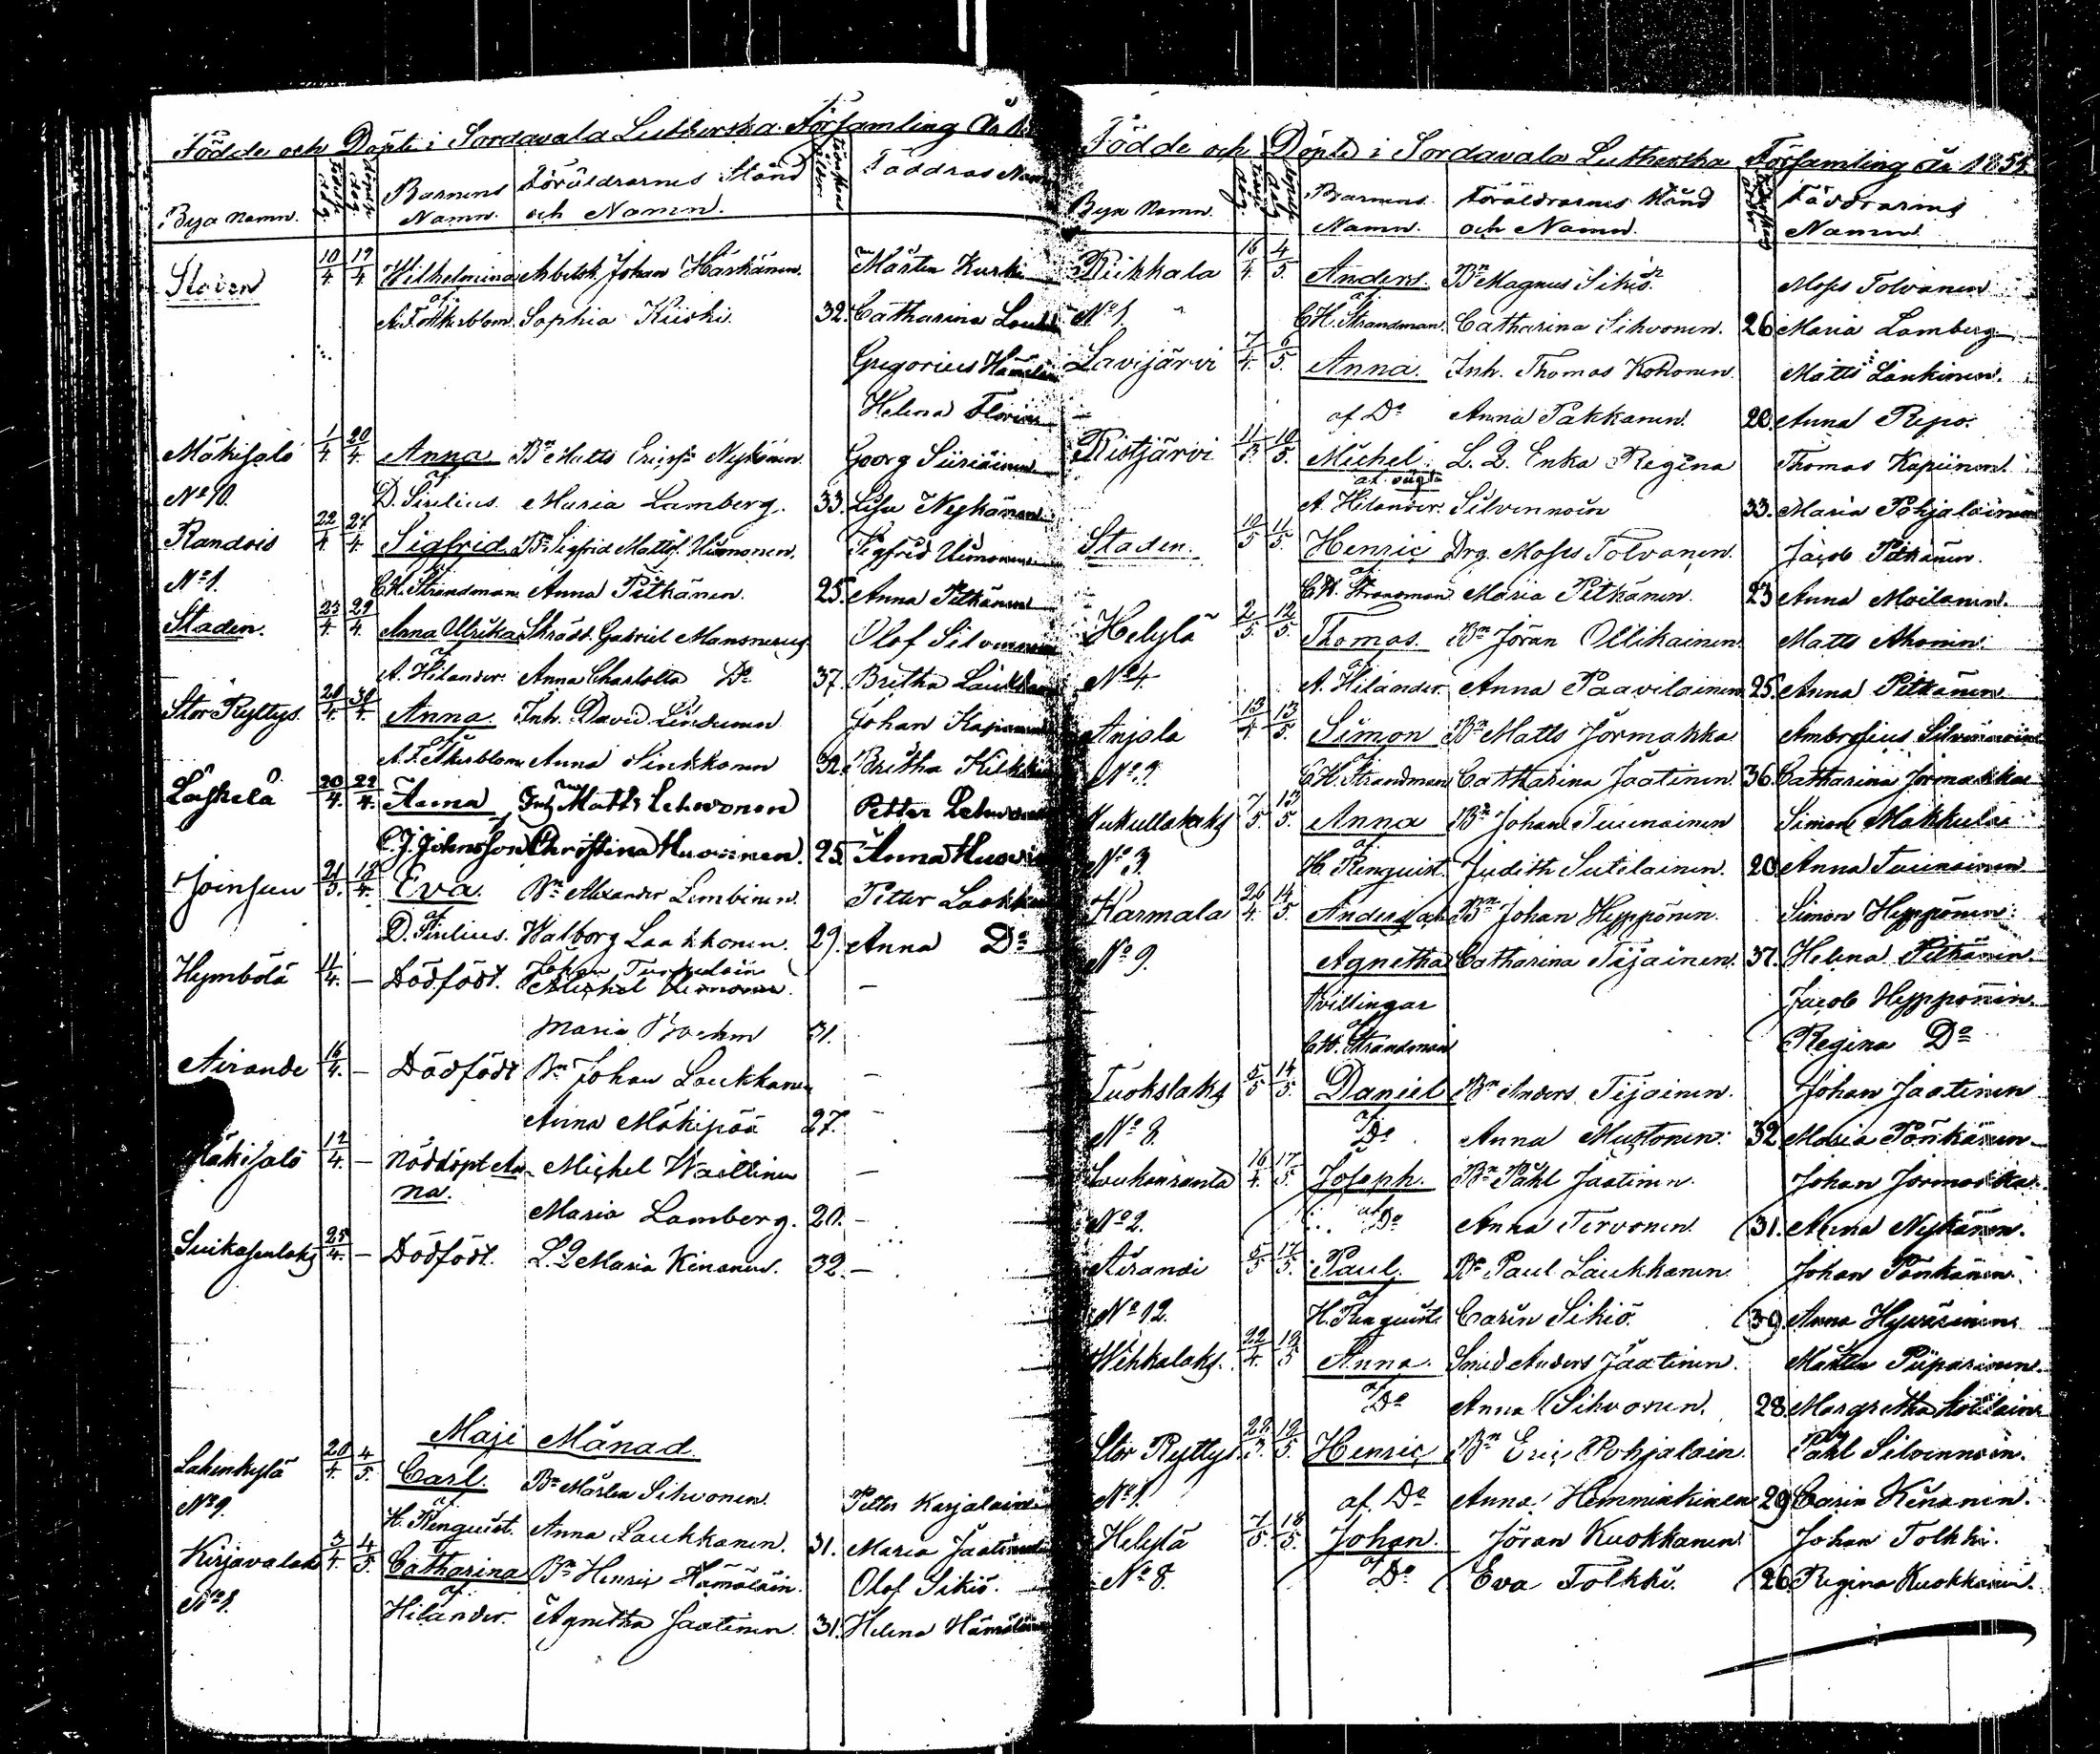 Födde och Döpte i Sordavala Lutherska Församling År
Bya Namn. Barnens Namn. Föräldrarnes Stånd och Namn. Faddras Namn
Staden 10/4 19/4 Wilhelmina Arbetsk. Johan Härkönen. Mårten Kurki
af A. F. Åkerblom. Sophia Kiiski. 32. Catharina
Gregorius
Helena
Mäkisalo 1/4 20/4 Anna Bn Matts Ericss: Nykänen. Georg Siiriäinen
No 10. af D. Sirelius. Maria Lamberg. 33. Lisa Nykänen
Randois 22/4 27/4 Sigfrid Bn Sigfrid Mattss. Uimonen. Sigfrid Uimonen
No 1. C. H. Strandman Anna Pitkänen. 25. Anna Pitkänen
Staden. 23/4 29/4 Anna Ulrika Skrädd. Gabriel Mansnerus Olof Silvennoin
af A. Hilander. Anna Charlotta Do 37. Britha Laukkan
Stor Ryttys 28/4 30/4 Anna. Inh. David Lindeman Johan
af A. F. Åkerblom Anna Sinkkonen 32. Britha
Läskelä 20/4 22/4 Anna Inh. Matts Lehvonen Petter Lehvonen
af C. J. Johnsson Christina Huovinen. 25. Anna Huovin
Joinsuu 21/3. 18/4. Eva. Bn Alexander Lembinen. Petter Laakkon
af D. Sirelius. Walborg Laakkonen. 29. Anna Do
Hymbölä 11/4. – Dödfödt. Johan –
Michel Uimonen.
Maria 31.
Airande 16/4. – Dödfödt Bn Johan Laukkanen –
Anna Mäkipää 27. –
Mäkisalo 12/4. – Nöddöpt An- Michel –
na. Maria Lamberg. 20. –
25/4. – Dödfödt. L. Q. Maria Kinanen. 32. –
Maji Månad.
Lahenkylä 20/4. 4/5. Carl. Bn Mårten Sihvonen. Petter Karjalain
No 9. af H. Renquist. Anna Laukkanen. 31. Maria Jaatinen
Kirjavalak 3/4. 4/5. Catharina Bn Henric Hämäläin. Olof Sikiö.
No 1. af Hilander. Agnetha Jaatinen. 31. Helena Hämäläin
Födde och Döpte i Sordavala Lutherska Församling År 1854.
Bya Namn. Barnens Namn. Föräldrarnes Stånd och Namn. Faddrarnes Namn
Riikkala 16/4. 4/5. Anders. Bn Magnus Sikiö. Moses Tolvanen
No 1. af C. H. Strandman. Catharina Sihvonen. 26. Maria Lamberg
Lavijärvi 7/4. 6/5. Anna. Inh. Thomas Kokkonen Matts Lankinen.
af Do Anna Pakkanen. 20. Anna Repo.
Ristjärvi 10/5. Michel. L. Q. Enka Regina Thomas
af A. Hilander. Silvennoin 33. Maria Pohjalainen
Staden. 10/5 11/5. Henric Drg. Moses Tolvanen. Jacob Pitkänen.
af C. H. Strandman Maria Pitkänen. 23 Anna Moilanen.
Helylä 2/5. 12/5. Thomas. Bn Jöran Ollikainen. Matts Ahonen.
No 4. af A. Hilander. Anna Paavilainen 25. Anna Pitkänen
Anjala 13/4 13/5. Simon Bn Matts Jormakka Ambrosius Silvennoin
C. H. Strandman Catharina Jaatinen. 36. Catharina Jormakka
Kukullolaks 7/5. 13/5. Anna Bn Johan Tuunainen Simon Makkula
No 3. af H. Renquist. Judith Sutilainen. 20. Anna Tuunainen
Karmala 26/4. 14/5. Anders och Bn Johan Hyppönen. Simon Hyppönen.
No 9. Agnetha Catharina Tijainen. 37. Helena Pitkänen
Tvillingar Jacob Hyppönen.
af C. H. Strandman Regina Do
Tuokslaks 5/5 14/5. Daniel Bn Anders Tijainen. Johan Jaatinen
No 8. af Do Anna Mustonen. 32. Maria Pönkänen
Leukonranta 16/4. 17/5. Joseph. Bn Påhl Jaatinen. Johan Jormakka.
No 2. af Do Anna Tervonen. 31. Anna Nykänen.
Airandi 5/5 17/5. Paul. Bn Paul Laukkanen Johan Pönkänen.
No 12. af H. Renquist Carin Sikiö. 39. Anna Hyväsinen
Wihkalaks. 22/4. 18/5 Anna. Smed Anders Jaatinen. Matts Piiparinen.
af Do Anna Sihvonen. 28. Margretha
Stor Ryttys 18/5. Henric Bn Eric Pohjalain. Påhl Silvennoin.
No 1. af Do Anna Hemminkinen 29. Carin Kinanen.
Helylä 7/5. 18/5. Johan. Jöran Kuokkanen. Johan Tolkki.
No 8. af Do Eva Tolkki. 26. Regina Kuokkanen.